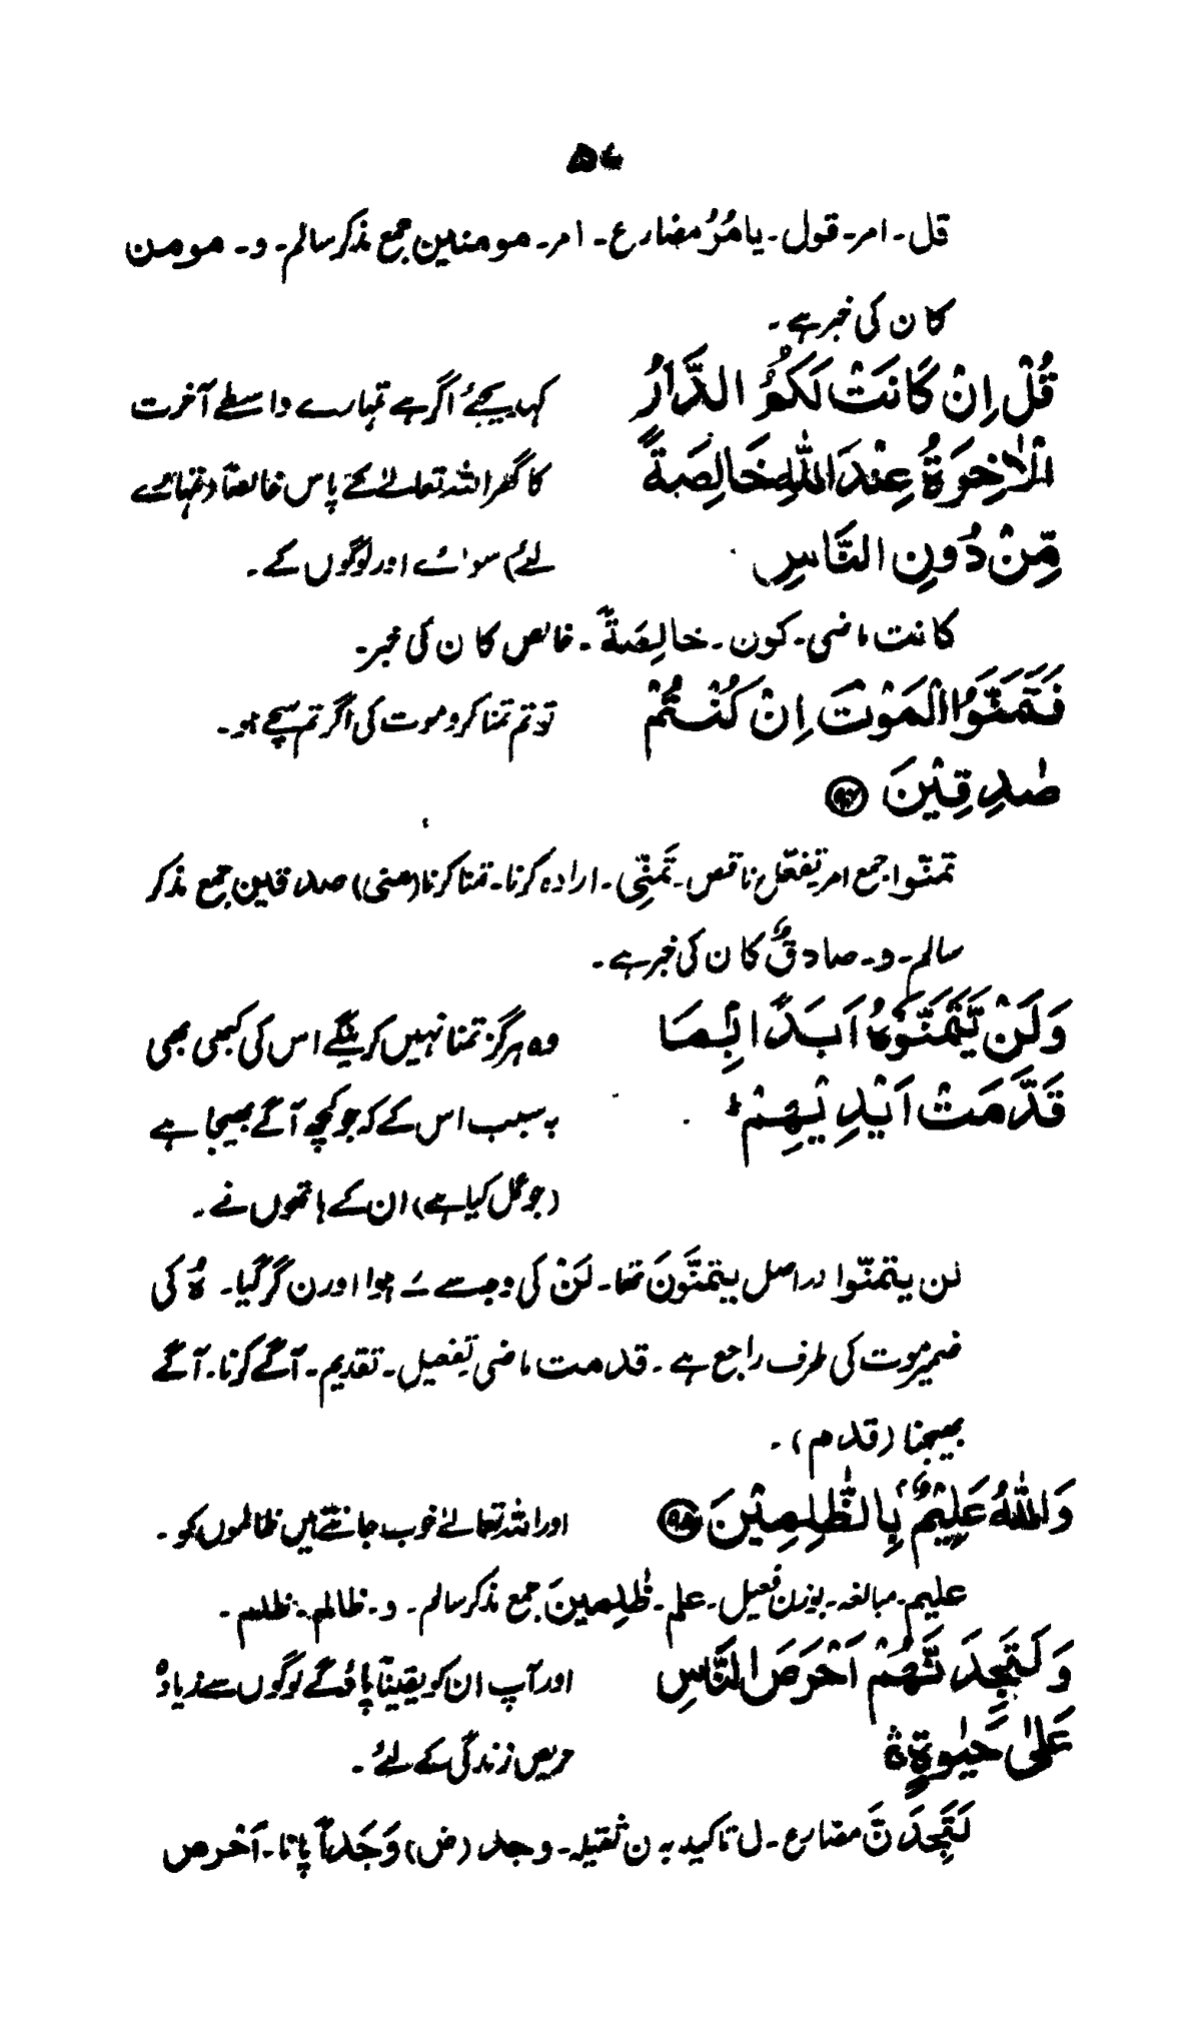 ۵۷
قل۔ امر۔ قول۔ یامُرُ مضارع۔ امر۔ مومنین جمع مذکر سالم۔ و۔ مومن
کان کی خبر ہے۔
قُلْ اِنْ كَانَتْ لَكُمُ الدَّارُ
کہدیجئے اگر ہے تمہارے واسطے آخرت
الْاٰخِرَةُ عِنْدَ اللّٰهِ خَالِصَةً
کا گھر اللہ تعالےٰ کے پاس خالصاً (تنہا تمہارے
مِّنْ دُوْنِ النَّاسِ
لئے) سوائے اور لوگوں کے۔
کانت ماضی۔ کون۔ خالِصَةً۔ خالص کان کی خبر۔
فَتَمَنَّوُا الْمَوْتَ اِنْ كُنْتُمْ
تو تم تمنا کرو موت کی اگر تم سچے ہو۔
صٰدِقِيْنَ
تمنّوا جمع امر تفعّل ناقص۔ تَمَنِّی۔ ارادہ کرنا۔ تمنا کرنا (منی) صدقین جمع مذکر
سالم۔ و۔ صادقٌ کان کی خبر ہے۔
وَلَنْ يَّتَمَنَّوْهُ اَبَدًۢا بِمَا
وہ ہرگز تمنا نہیں کرینگے اس کی کبھی بھی
قَدَّمَتْ اَيْدِيْهِمْ ؕ
بہ سبب اس کے کہ جو کچھ آگے بھیجا ہے
(جو عمل کیا ہے) ان کے ہاتھوں نے۔
لن یتمنّوا دراصل یتمنَّونَ تھا۔ لَنْ کی وجہ سے ہوا اور ن گر گیا۔ هُ کی
ضمیر موت کی طرف راجع ہے۔ قدمت ماضی تفعیل۔ تقدیم۔ آگے کرنا۔ آگے
بھیجنا (قدم)۔
وَاللّٰهُ عَلِيْمٌۢ بِالظّٰلِمِيْنَ
اور اللہ تعالےٰ خوب جانتے ہیں ظالموں کو۔
علیم۔ مبالغہ۔ بوزن فَعِیل۔ علم۔ ظٰلِمِینَ جمع مذکر سالم۔ و۔ ظالم۔ ظلم۔
وَلَتَجِدَنَّهُمْ اَحْرَصَ النَّاسِ
اور آپ ان کو یقیناً پاؤ گے لوگوں سے زیادہ
عَلٰى حَيٰوةٍ ۛ
حریص زندگی کے لئے۔
لَتَجِدَنَّ مضارع۔ ل تاکید بہ ن ثقیلہ۔ وجد (ض) وَجَدَاً پانا۔ اَحْرص